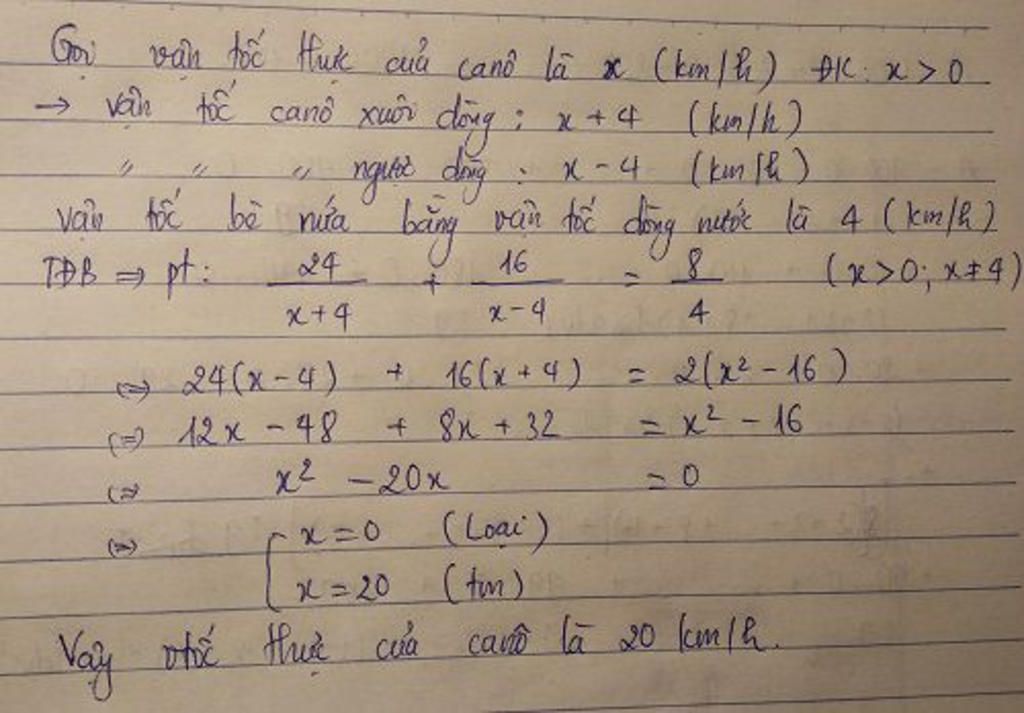 Gọi vận tốc thực của canô là x (km/h) ĐK: x > 0
→ vận tốc canô xuôi dòng: x + 4 (km/h)
〃 〃 〃 ngược dòng: x - 4 (km/h)
vận tốc bè nứa bằng vận tốc dòng nước là 4 (km/h)
TĐB ⇒ pt: 24/(x+4) + 16/(x-4) = 8/4 (x>0; x≠4)
⇔ 24(x-4) + 16(x+4) = 2(x² - 16)
⇔ 12x - 48 + 8x + 32 = x² - 16
⇔ x² - 20x = 0
⇔ [ x = 0 (Loại)
x = 20 (tm)
Vậy vtốc thực của canô là 20 km/h.